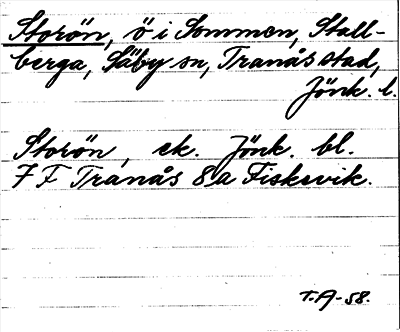 Storön, ö i Sommen, Stall-
berga, Säby sn, Tranås stad,
Jönk. l.
Storön, ek. Jönk. bl.
7 F Tranås 8a Fiskevik.
T.A-58.